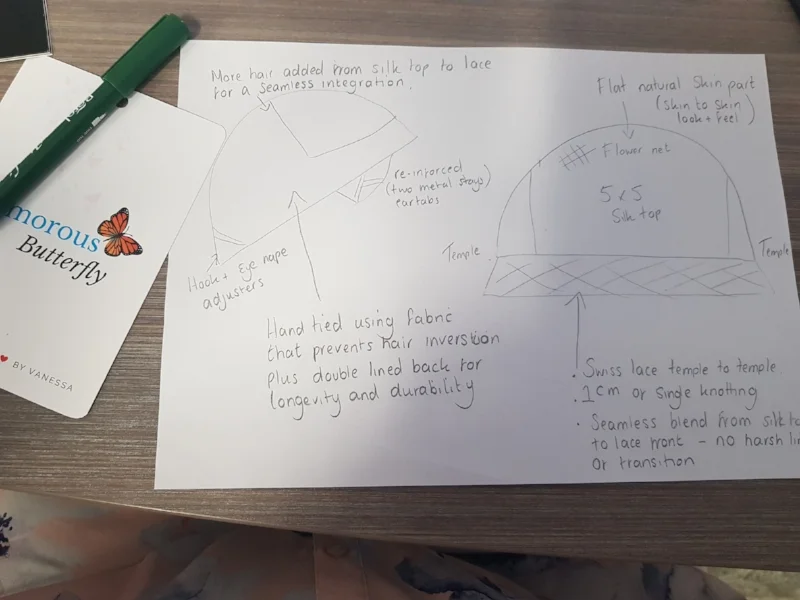 More hair added from silk top to lace
for a seamless integration.
re-inforced
(two metal stays)
eartabs
Hook + Eye nape
adjusters
Hand tied using fabric
that prevents hair inversion
plus double lined back for
longevity and durability
Flat natural skin part
(skin to skin
look + feel)
Flower net
5 x 5
Silk top
Temple
Temple
• Swiss lace temple to temple
• 1cm or single knotting
• Seamless blend from silk to
to lace front - no harsh li
or transition
morous
Butterfly
BY VANESSA